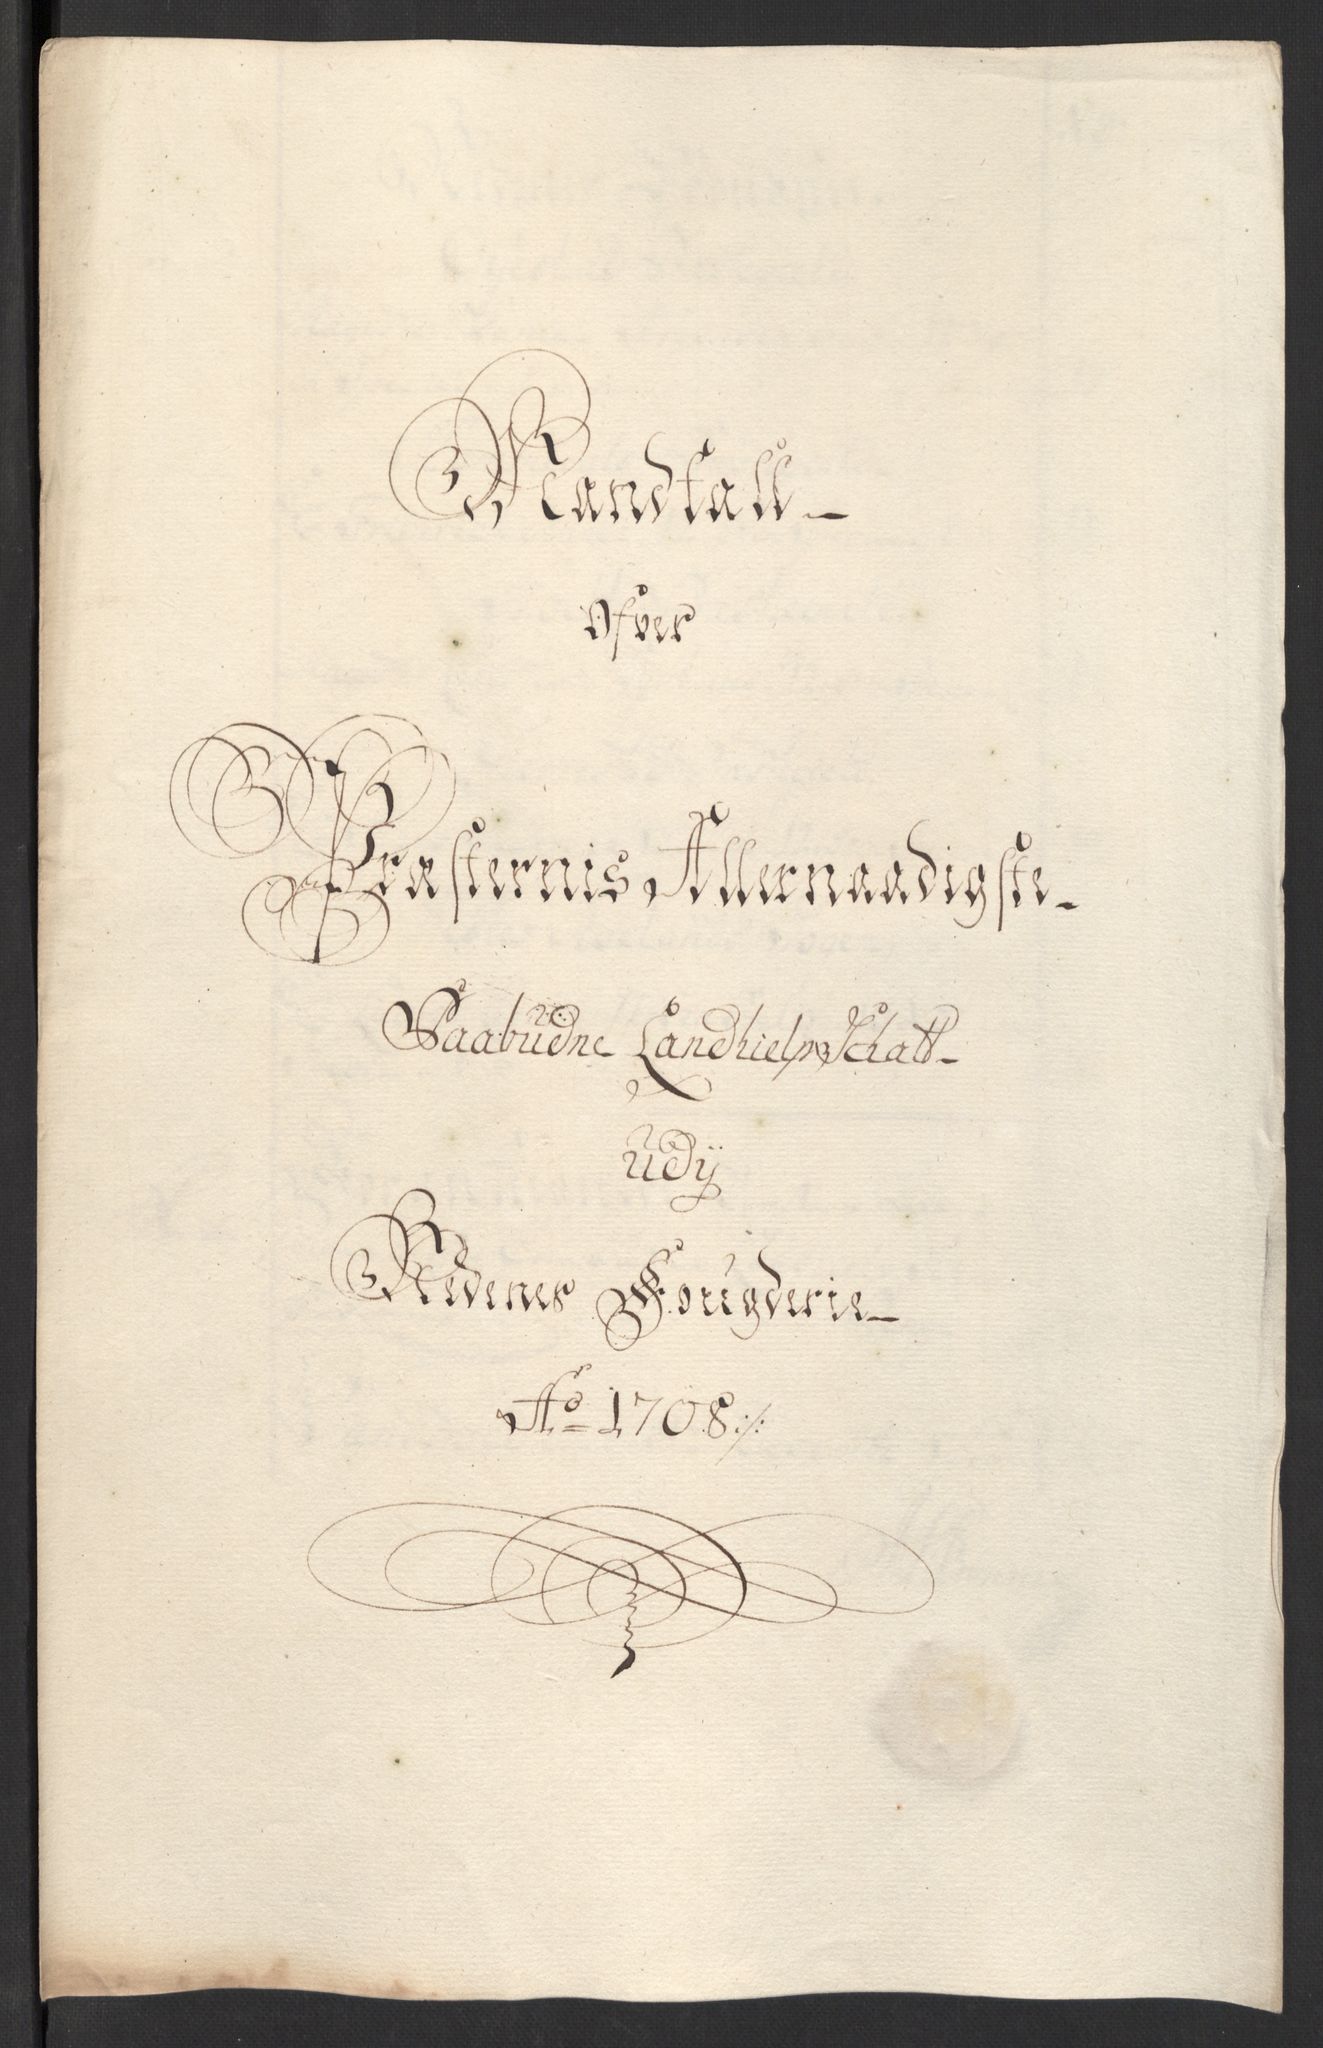 Mandtall
Ofver
Præsternis Allernaadigste
Paabudne Landhielp Schatt
udÿ
Nedenes Fougderie
Ao 1708 ·/·